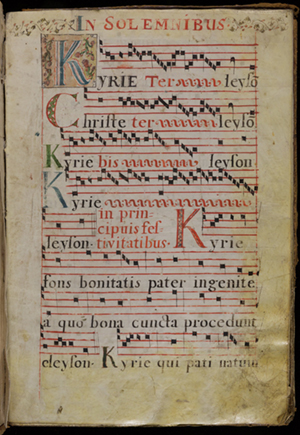 IN SOLEMNIBUS
KYRIE Ter leysō
Christe ter leysō
Kyrie bis leyson
Kyrie
in prin-
cipuis fes
leyson tivitatibus Kyrie
fons bonitatis pater ingenite
a quo bona cuncta procedunt
eleyson Kyrie qui pati natum